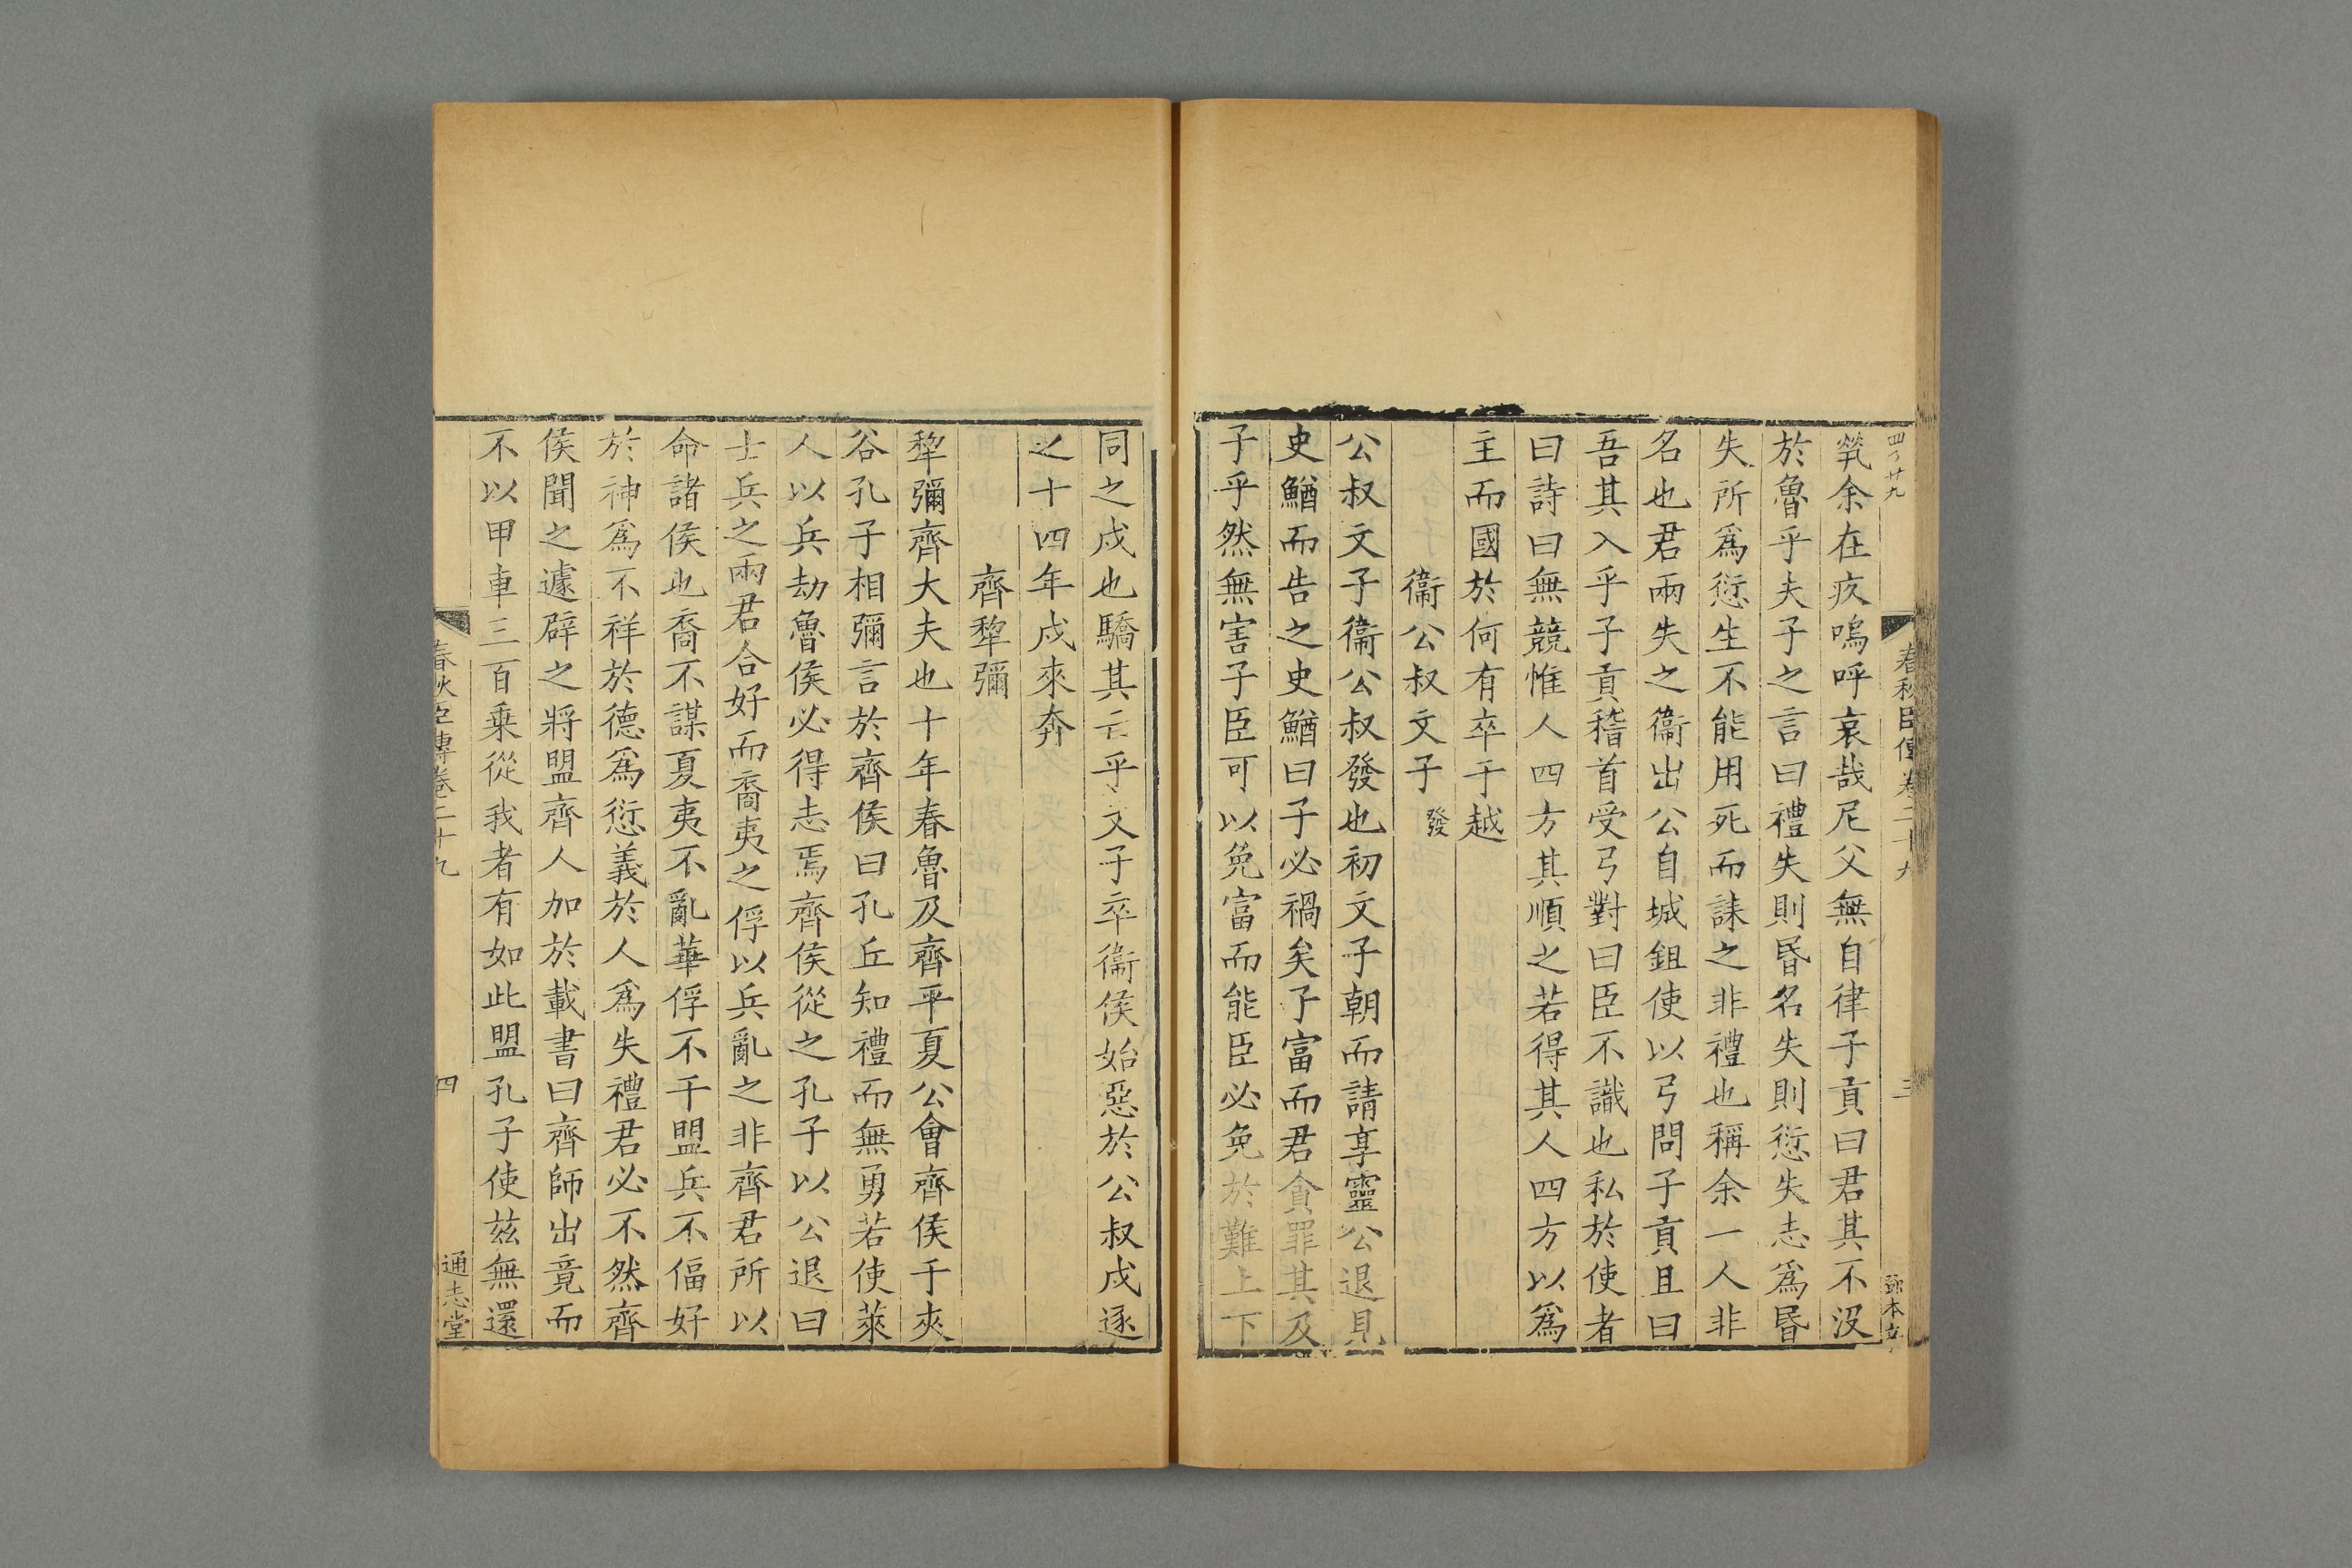 煢余在疚嗚呼哀哉尼父無自律子貢曰君其不沒
於魯乎夫子之言曰禮失則昬名失則愆失志爲昬
失所爲愆生不能用死而誄之非禮也稱余一人非
名也君兩失之衞出公自城鉏使以弓問子貢且曰
吾其入乎子貢稽首受弓對曰臣不識也私於使者
曰詩曰無競惟人四方其順之若得其人四方以爲
主而國於何有卒于越
衞公叔文子發
公叔文子衞公叔發也初文子朝而請享靈公退見
史鰌而告之史鰌曰子必禍矣子富而君貪罪其及
子乎然無害子臣可以免富而能臣必免於難上下
春秋臣傳卷二十九
三
四
廿九
同之戍也驕其亡乎文子卒衞侯始惡於公叔戍逐
之十四年戍來奔
齊犂彌
犂彌齊大夫也十年春魯及齊平夏公會齊侯于夾
谷孔子相彌言於齊侯曰孔丘知禮而無勇若使萊
人以兵劫魯侯必得志焉齊侯從之孔子以公退曰
士兵之兩君合好而裔夷之俘以兵亂之非齊君所以
命諸侯也裔不謀夏夷不亂華俘不干盟兵不偪好
於神爲不祥於德爲愆義於人爲失禮君必不然齊
侯聞之遽辟之將盟齊人加於載書曰齊師出竟而
不以甲車三百乗從我者有如此盟孔子使兹無還
春秋臣傳卷二十九
四
通志堂